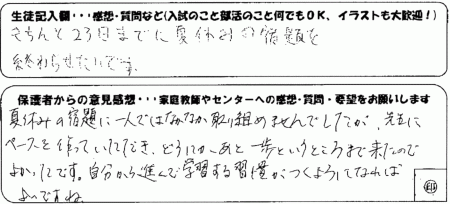 生徒記入欄・・・感想・質問など(入試のこと部活のこと何でもOK、イラストも大歓迎！)
きちんと23日までに夏休みの宿題を
終わらせたいです。
保護者からの意見感想・・・家庭教師やセンターへの感想・質問・要望をお願いします
夏休みの宿題に一人ではなかなか取り組めませんでしたが、先生に
ペースを作っていただき、どうにか、あと一歩というところまで来たので
よかったです。自分から進んで学習する習慣がつくようになれば
よいですね
印